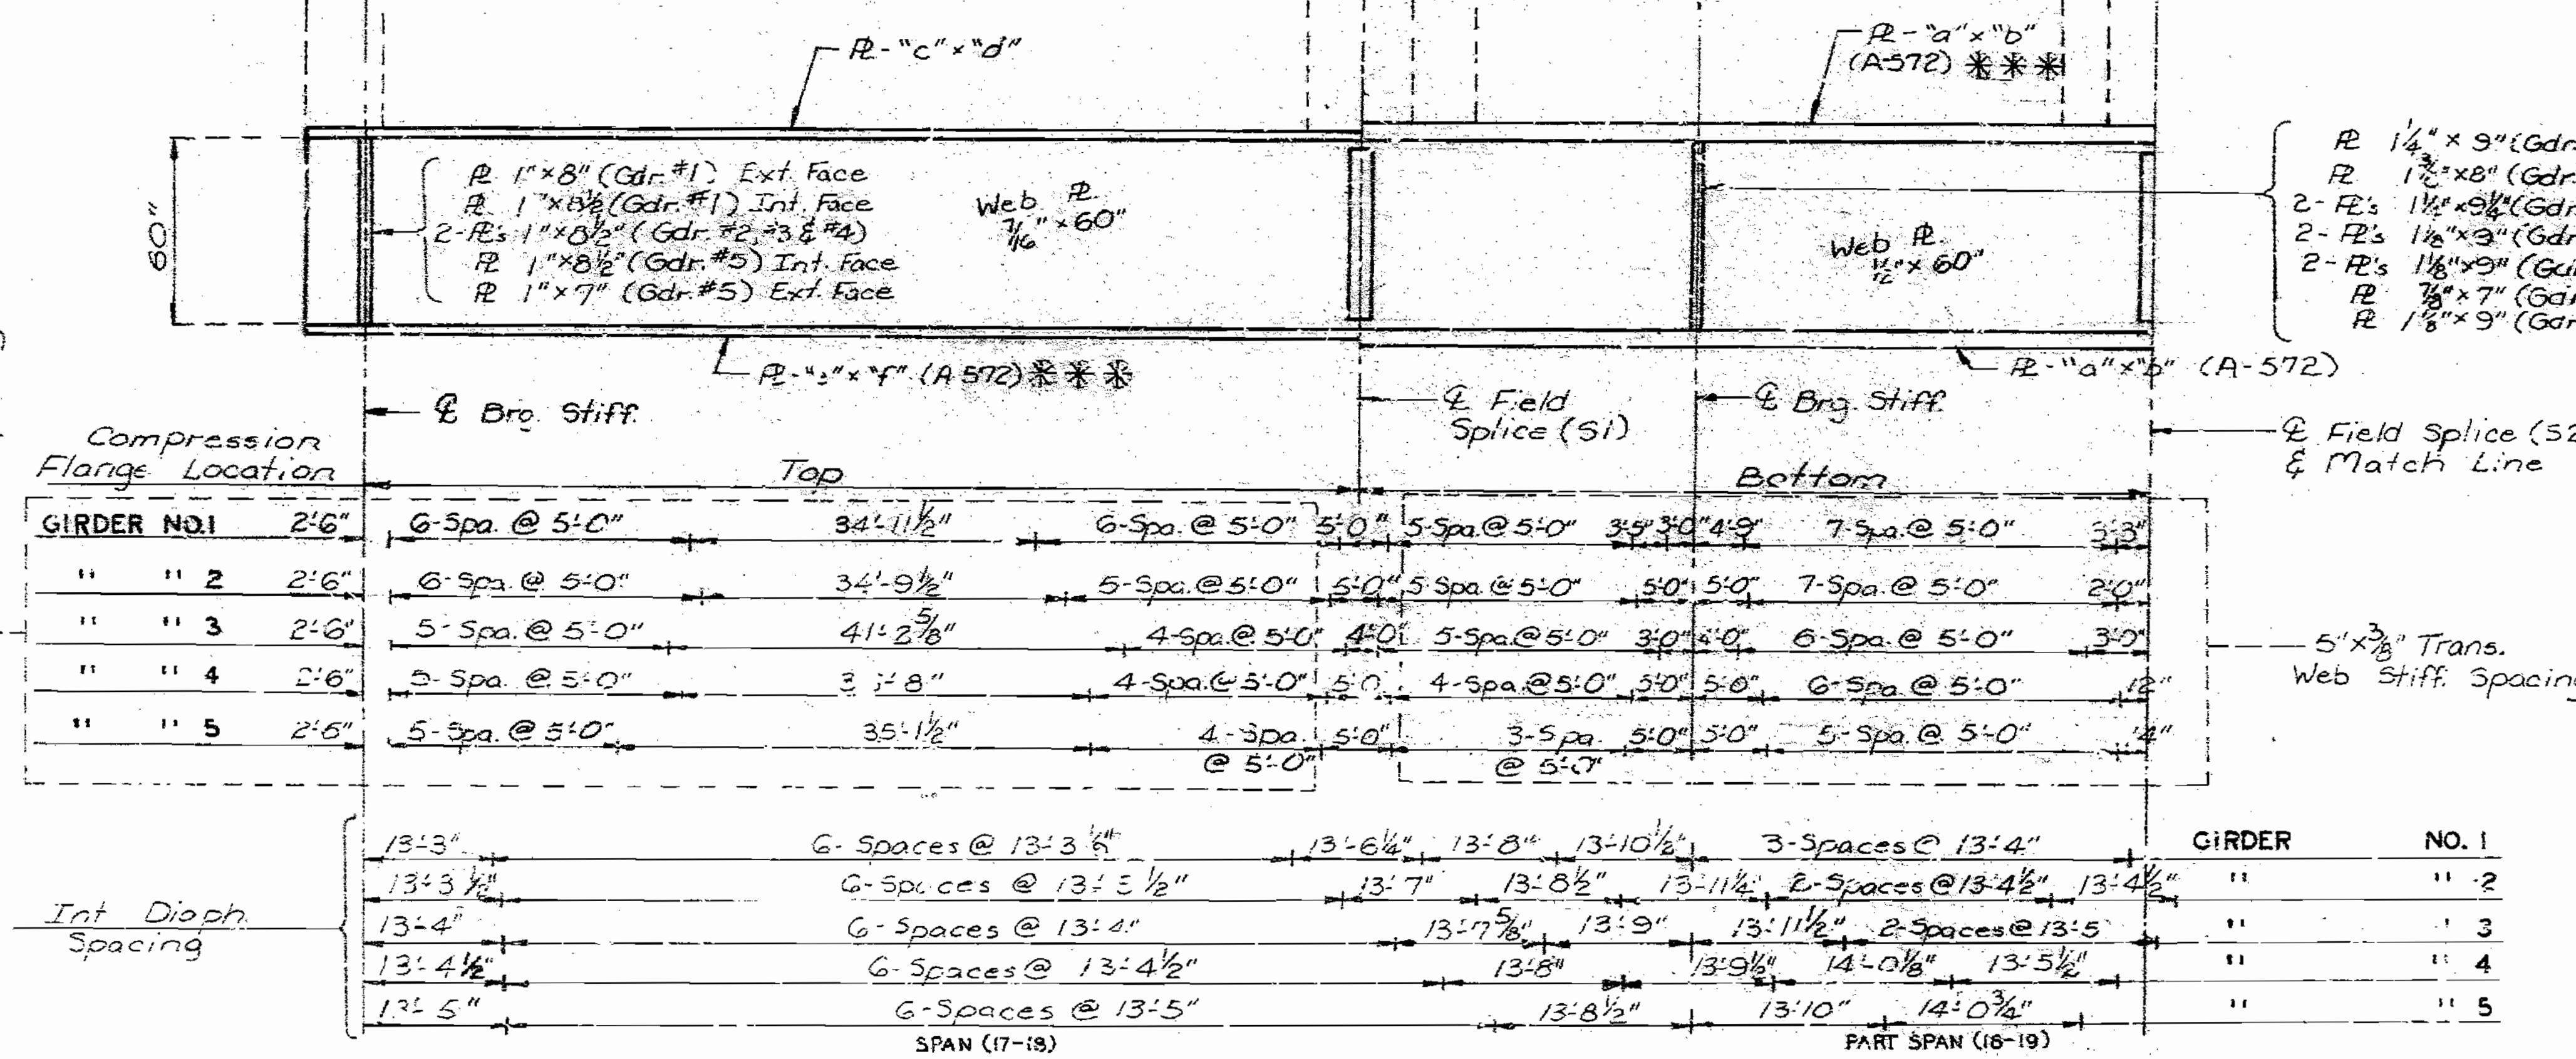 ℄ - "c" × "d"
℄ - "a" × "b"
(A-572) ***
60"
PL 1" × 8" (Gdr. #1) Ext. Face
PL 1" × 8 1/2" (Gdr. #1) Int. Face
2-PL's 1" × 8 1/2" (Gdr. #2, #3 & #4)
PL 1" × 8 1/2" (Gdr. #5) Int. Face
PL 1" × 7" (Gdr. #5) Ext. Face
Web PL
7/16" × 60"
Web PL
1/2" × 60"
PL 1 1/4" × 9" (Gdr.
PL ×8" (Gdr.
2-PL's ×9 1/4" (Gdr
2-PL's 1 1/8" × 9" (Gdr
2-PL's 1 1/8" × 9" (Gdr
PL 7/8" × 7" (Gdr
PL 1 1/8" × 9" (Gdr
PL - × "f" (A 572) ***
PL - "a" × "b" (A-572)
℄ Brg. Stiff.
℄ Field
Splice (S1)
℄ Brg. Stiff.
℄ Field Splice (S2
& Match Line
Compression
Flange Location
Top
Bottom
GIRDER NO. 1 2'-6" 6-Spa. @ 5'-0" 34'-11 1/2" 6-Spa. @ 5'-0" 5'-0" 5-Spa. @ 5'-0" 3'-5" 3'-0" 4'-9" 7-Spa. @ 5'-0" 3'-3"
" " 2 2'-6" 6-Spa. @ 5'-0" 34'-9 1/2" 5-Spa. @ 5'-0" 5'-0" 5-Spa. @ 5'-0" 5'-0" 5'-0" 7-Spa. @ 5'-0" 2'-0"
" " 3 2'-6" 5-Spa. @ 5'-0" 41'-2 5/8" 4-Spa. @ 5'-0" 4'-0" 5-Spa. @ 5'-0" 3'-0" 4'-0" 6-Spa. @ 5'-0" 3'-0"
" " 4 2'-6" 5-Spa. @ 5'-0" 4-Spa. @ 5'-0" 5'-0" 4-Spa. @ 5'-0" 5'-0" 5'-0" 6-Spa. @ 5'-0" 12"
" " 5 2'-6" 5-Spa. @ 5'-0" 35'-1 1/2" 4-Spa. 5'-0" 3-Spa. 5'-0" 5'-0" 5-Spa. @ 5'-0"
@ 5'-0" @ 5'-0"
5" × 3/8" Trans.
Web Stiff. Spacing
Int Diaph.
Spacing
13'-3" 6-Spaces @ 13'-6 1/4" 13'-8" 13'-10 1/2" 3-Spaces @ 13'-4" GIRDER NO. 1
13'-3 1/2" 6-Spaces @ 13'-7" 13'-8 1/2" 13'-11 1/4" 2-Spaces @ 13'-4 1/2" 13'-4 1/2" " " 2
13'-4" 6-Spaces @ 13'-4" 13'-7 5/8" 13'-9" 13'-11 1/2" 2-Spaces @ 13'-5 " 3
13'-4 1/2" 6-Spaces @ 13'-4 1/2" 13'-8" 13'-9 1/2" 14'-0 1/8" 13'-5 1/2" " " 4
13'-5" 6-Spaces @ 13'-5" 13'-8 1/2" 13'-10" 14'-0 3/4" " " 5
SPAN (17-18)
PART SPAN (18-19)